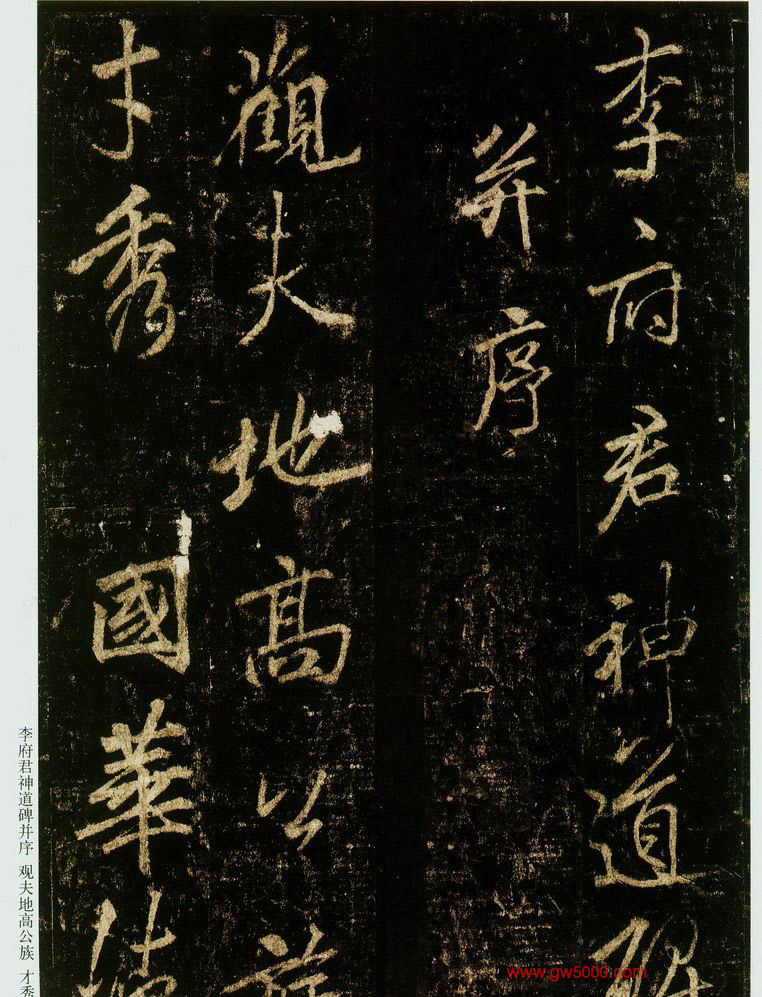 李府君神道碑
并序
觀夫地高公族
才秀國華
李府君神道碑并序 观夫地高公族 才秀
www.gw5000.com